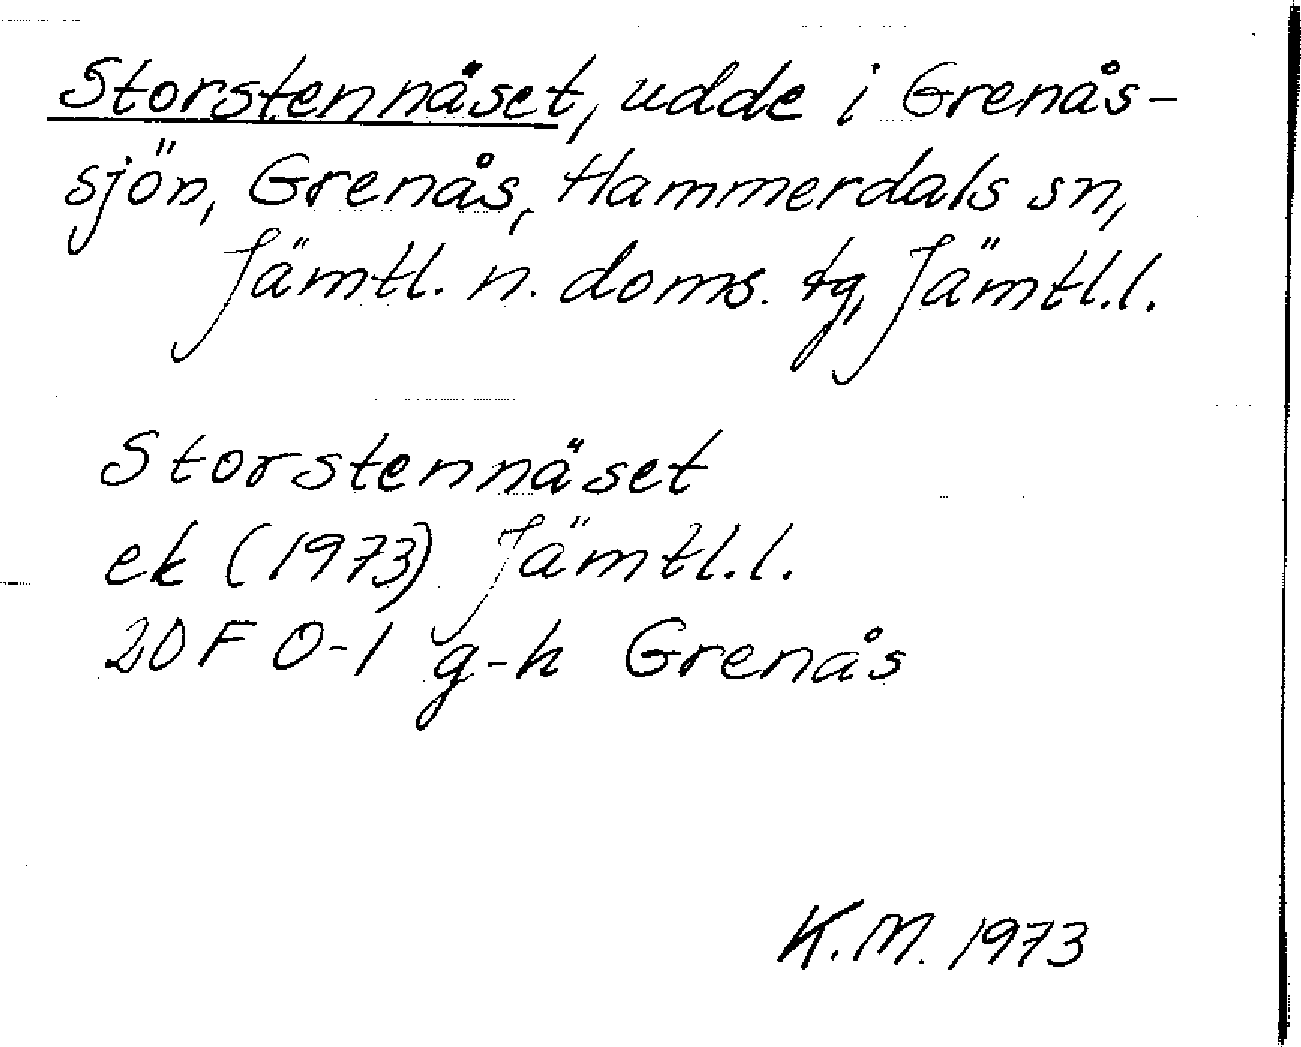 Storstennäset, udde i Grenås-
sjön, Grenås, Hammerdals sn,
Jämtl. n. doms. tg, Jämtl.l.
Storstennäset
ek (1973) Jämtl.l.
20F 0-1 g-h Grenås
K.M. 1973